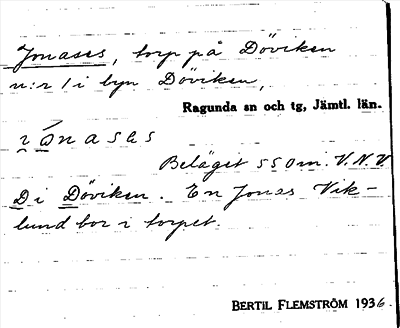 Jonases, torp på Döviken
n:r 1 i byn Döviken,
Ragunda sn och tg, Jämtl. län.
Beläget 550 m. V.N.V
D i Döviken. En Jonas Vik-
lund bor i torpet.
BERTIL FLEMSTRÖM 1936.